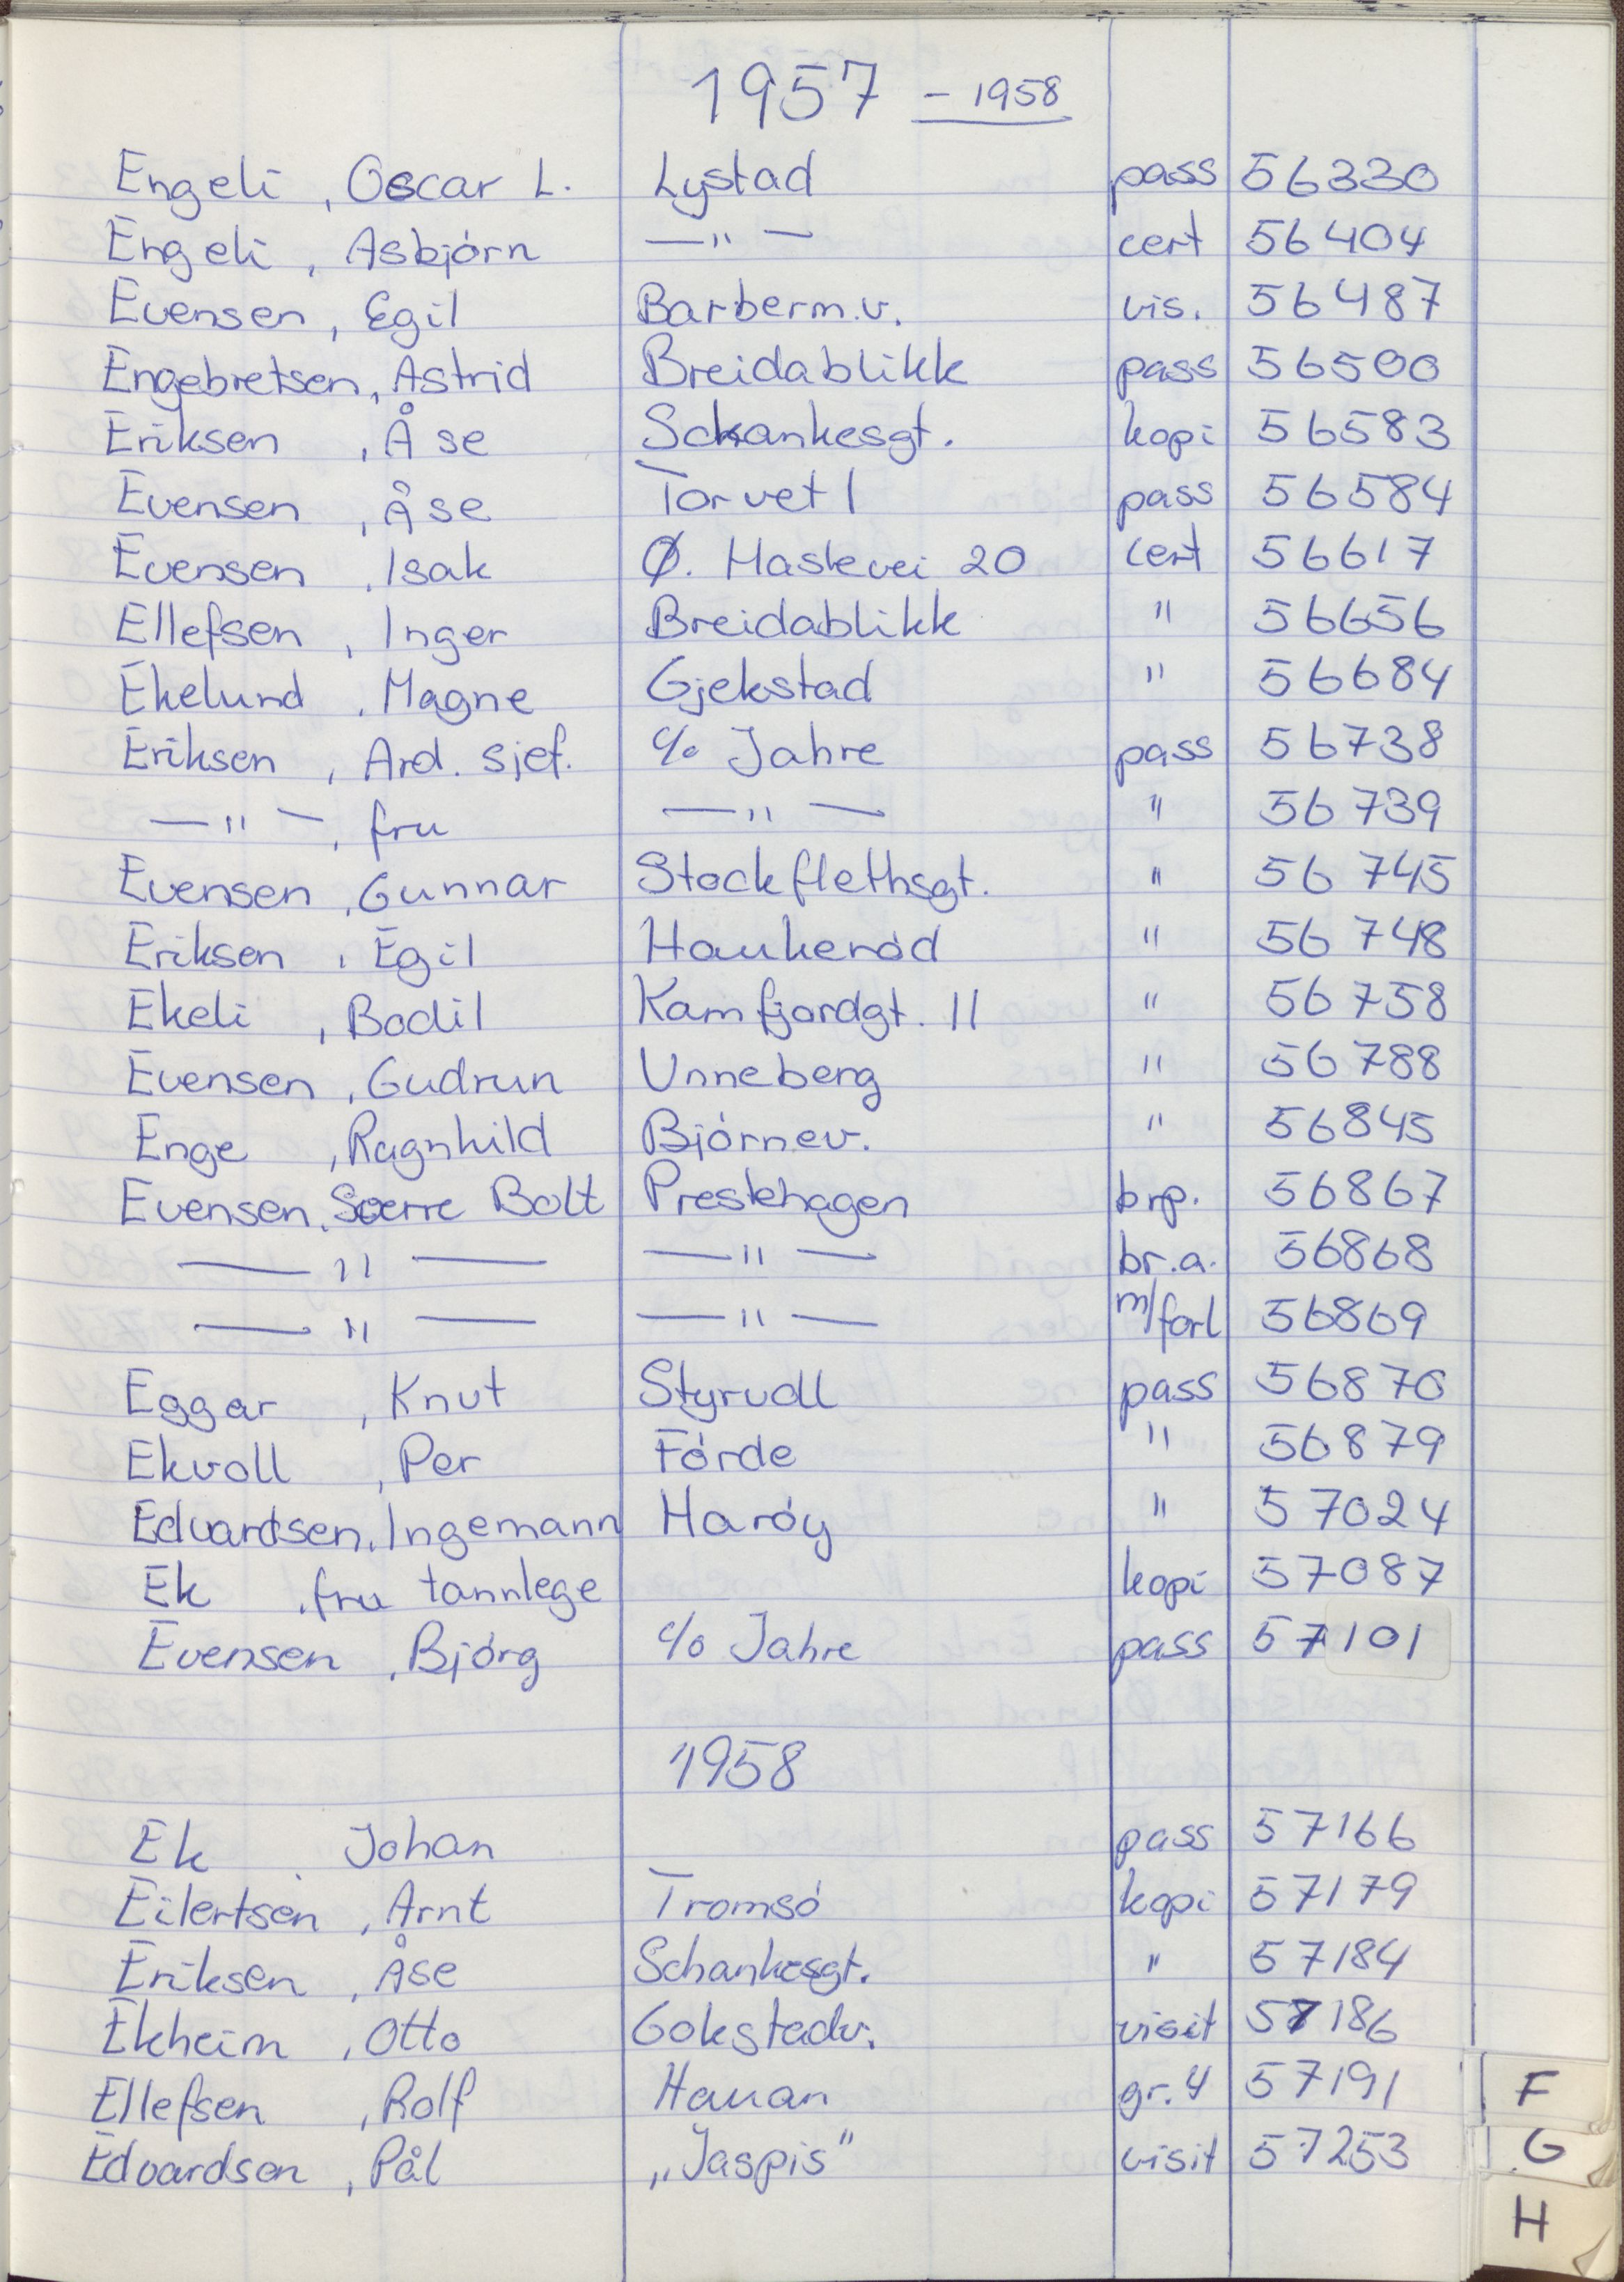 1957 - 1958
Engeli, Oscar L. Lystad pass 56330
Engeli, Asbjörn —"— cert 56404
Evensen, Egil Barberm.v. vis. 56487
Engebretsen, Astrid Breidablikk pass 56500
Eriksen, Åse Schankesgt. kopi 56583
Evensen, Åse Torvet 1 pass 56584
Evensen, Isak Ø. Haslevei 20 cert 56617
Ellefsen, Inger Breidablikk " 56656
Ekelund, Magne Gjekstad " 56684
Eriksen, Ard. sjef. c/o Jahre pass 56738
—"—, fru —"— " 56739
Evensen, Gunnar Stockflethsgt. " 56745
Eriksen, Egil Haukeröd " 56748
Ekeli, Bodil Kamfjordgt. 11 " 56758
Evensen, Gudrun Unneberg " 56788
Enge, Ragnhild Björnev. " 56845
Evensen, Sverre Bolt Prestehagen brp. 56867
—"— —"— br.a. 56868
—"— —"— m/forl 56869
Eggar, Knut Styrvoll pass 56870
Ekvoll, Per Förde " 56879
Edvardsen, Ingemann Haröy " 57024
Ek, fru tannlege kopi 57087
Evensen, Björg c/o Jahre pass 57101
1958
Ek, Johan pass 57166
Eilertsen, Arnt Tromsö kopi 57179
Eriksen, Åse Schankesgt. " 57184
Ekheim, Otto Gokstadv. visit 57186
Ellefsen, Rolf Hauan gr.4 57191
Edvardsen, Pål „Jaspis" visit 57253
F
G
H